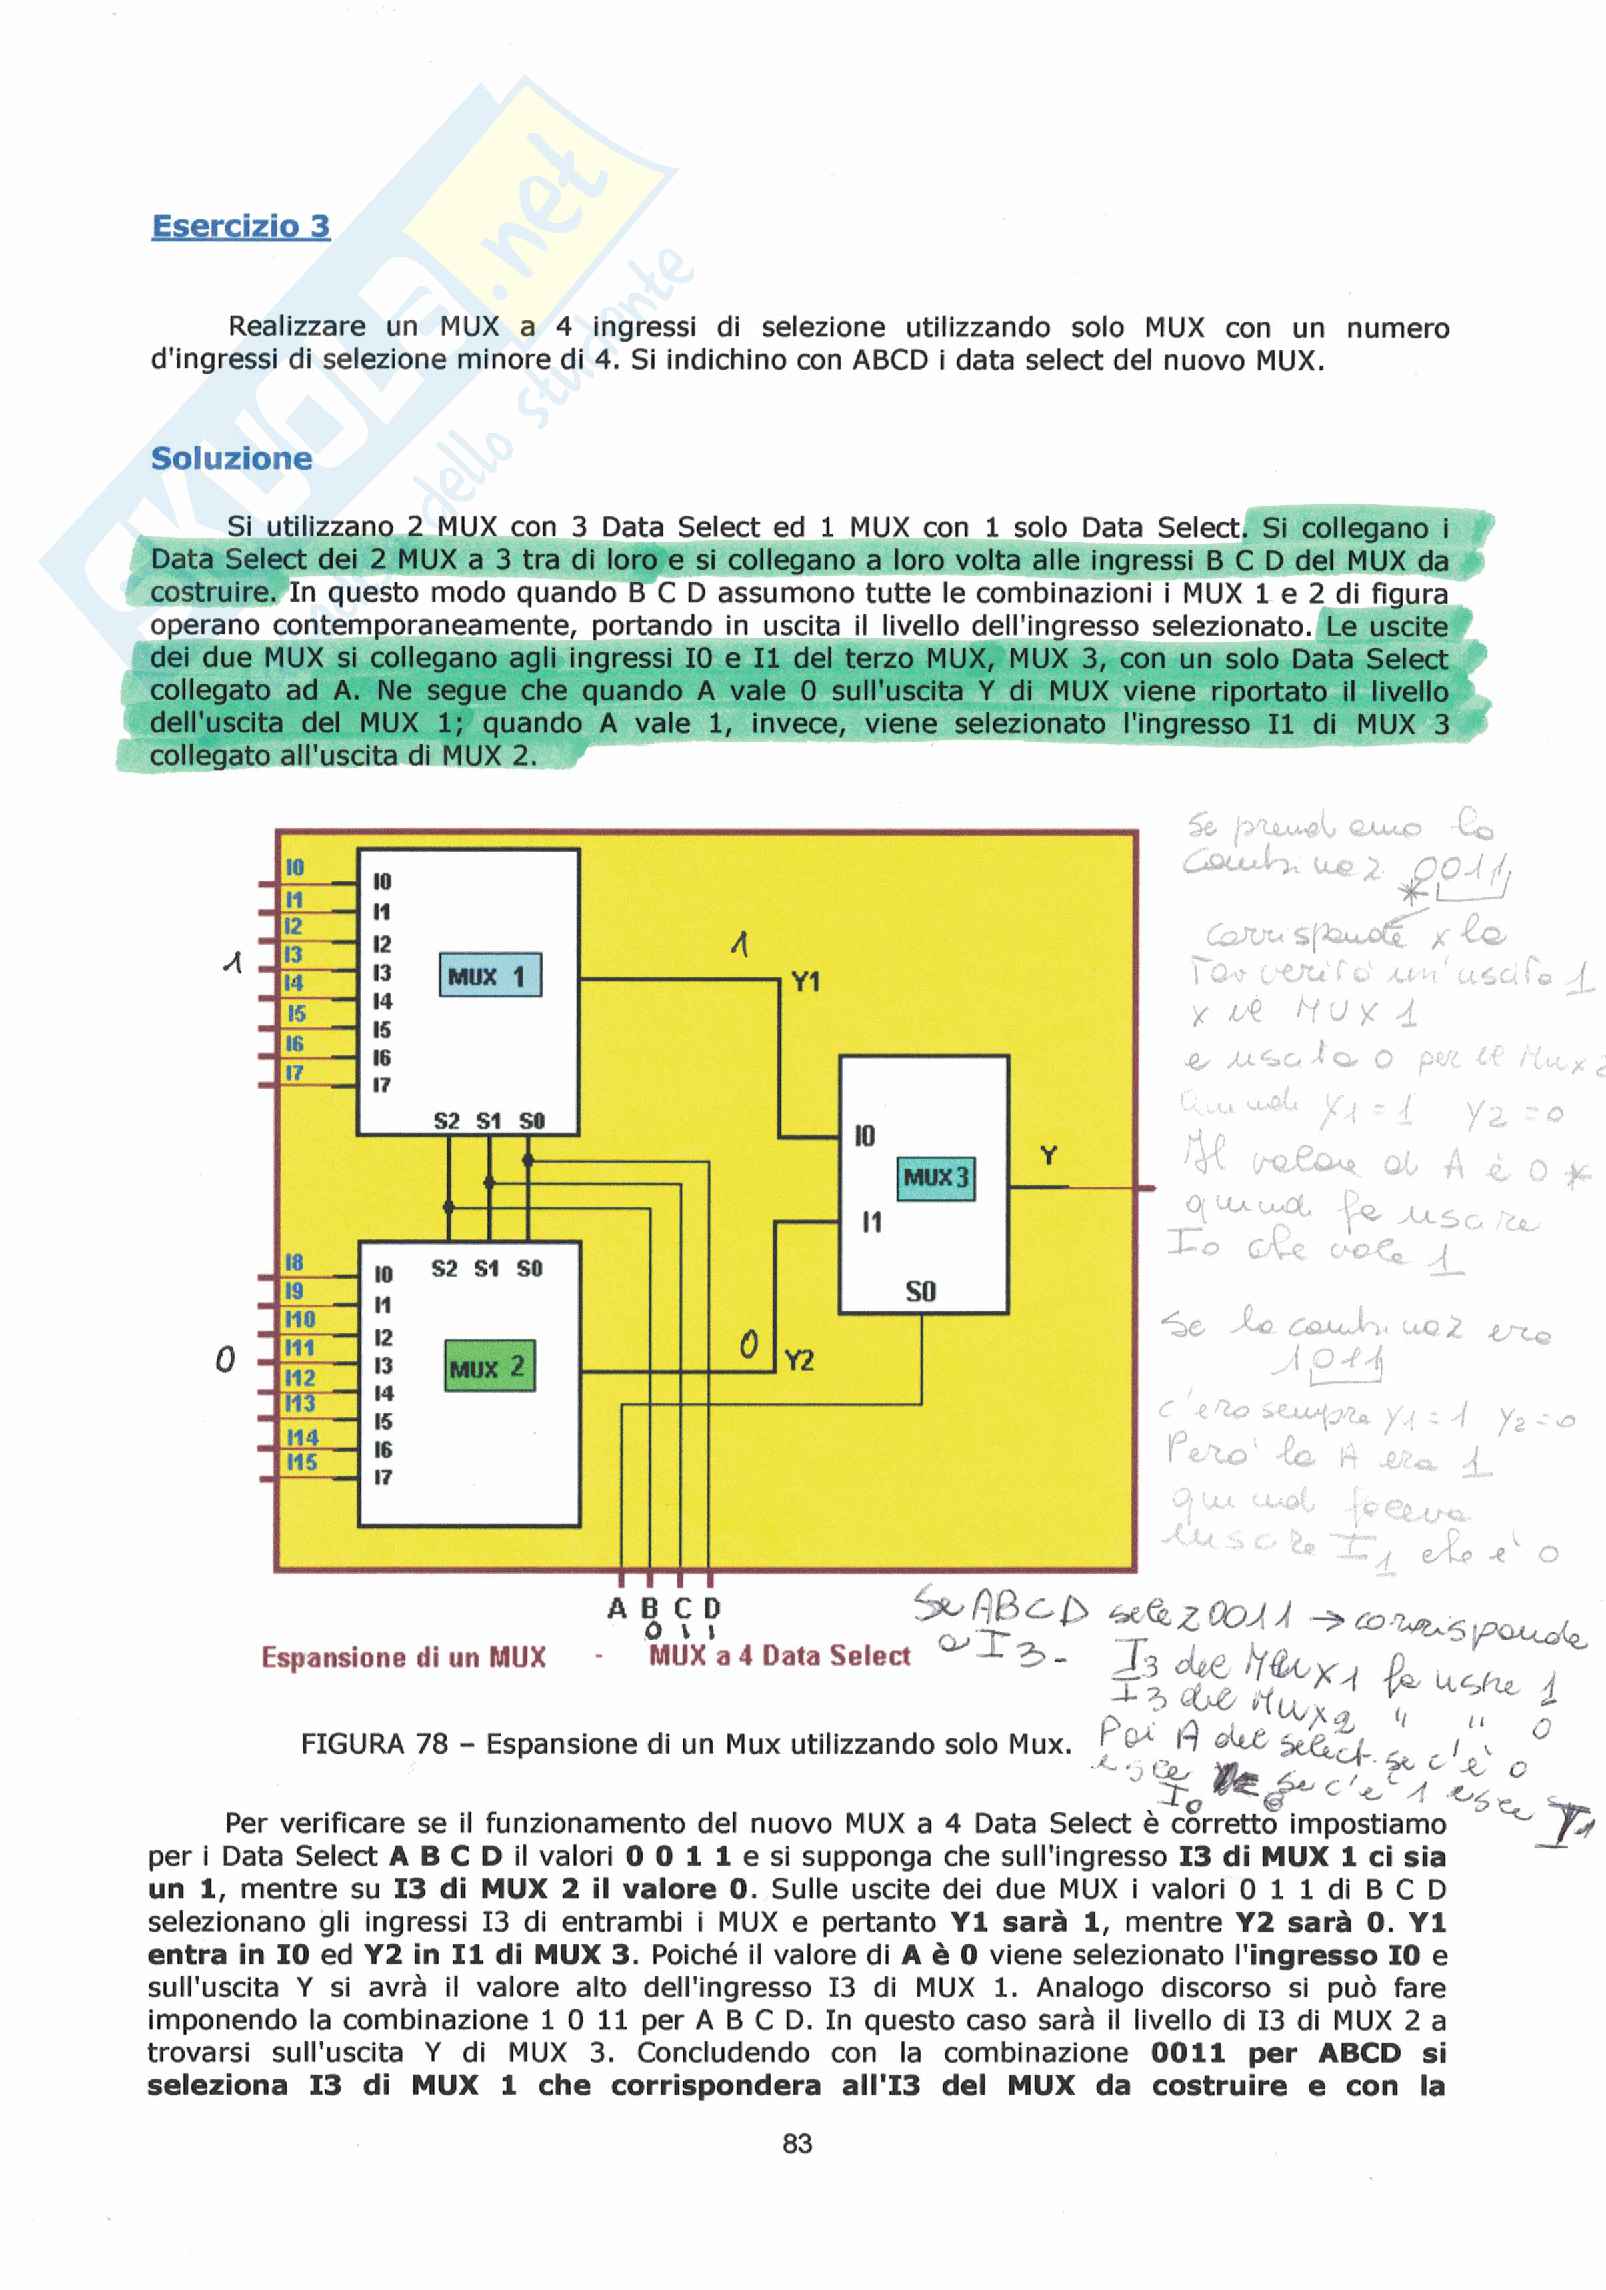 SKUOLA.net
dello studente
Esercizio 3
Realizzare un MUX a 4 ingressi di selezione utilizzando solo MUX con un numero
d'ingressi di selezione minore di 4. Si indichino con ABCD i data select del nuovo MUX.
Soluzione
Si utilizzano 2 MUX con 3 Data Select ed 1 MUX con 1 solo Data Select. Si collegano i
Data Select dei 2 MUX a 3 tra di loro e si collegano a loro volta alle ingressi B C D del MUX da
costruire. In questo modo quando B C D assumono tutte le combinazioni i MUX 1 e 2 di figura
operano contemporaneamente, portando in uscita il livello dell'ingresso selezionato. Le uscite
dei due MUX si collegano agli ingressi I0 e I1 del terzo MUX, MUX 3, con un solo Data Select
collegato ad A. Ne segue che quando A vale 0 sull'uscita Y di MUX viene riportato il livello
dell'uscita del MUX 1; quando A vale 1, invece, viene selezionato l'ingresso I1 di MUX 3
collegato all'uscita di MUX 2.
I0
I1
I2
I3
I4
I5
I6
I7
1
I0
I1
I2
I3
I4
I5
I6
I7
MUX 1
S2 S1 S0
1
Y1
I0
MUX3
I1
S0
Y
I8
I9
I10
I11
I12
I13
I14
I15
0
S2 S1 S0
I0
I1
I2
I3
I4
I5
I6
I7
MUX 2
0
Y2
A B C D
0 1 1
Espansione di un MUX - MUX a 4 Data Select
Se prendiamo la
combinaz. 0011
corrisponde x la
Tav verità un'uscita 1
x il MUX 1
e uscita 0 per il Mux 2
Quindi Y1 = 1 Y2 = 0
Il valore di A è 0 *
quindi fa uscire
I0 che vale 1
Se la combinaz era
1011
c'era sempre Y1 = 1 Y2 = 0
Però la A era 1
quindi faceva
uscire I1 che è 0
Se ABCD selez 0011 → corrisponde
a I3.
I3 del MUX1 fa uscire 1
I3 del Mux2 " " 0
Poi A del select. se c'è 0
esce I0 se c'è 1 esce I1
FIGURA 78 – Espansione di un Mux utilizzando solo Mux.
Per verificare se il funzionamento del nuovo MUX a 4 Data Select è corretto impostiamo
per i Data Select A B C D il valori 0 0 1 1 e si supponga che sull'ingresso I3 di MUX 1 ci sia
un 1, mentre su I3 di MUX 2 il valore 0. Sulle uscite dei due MUX i valori 0 1 1 di B C D
selezionano gli ingressi I3 di entrambi i MUX e pertanto Y1 sarà 1, mentre Y2 sarà 0. Y1
entra in I0 ed Y2 in I1 di MUX 3. Poiché il valore di A è 0 viene selezionato l'ingresso I0 e
sull'uscita Y si avrà il valore alto dell'ingresso I3 di MUX 1. Analogo discorso si può fare
imponendo la combinazione 1 0 11 per A B C D. In questo caso sarà il livello di I3 di MUX 2 a
trovarsi sull'uscita Y di MUX 3. Concludendo con la combinazione 0011 per ABCD si
seleziona I3 di MUX 1 che corrispondera all'I3 del MUX da costruire e con la
83